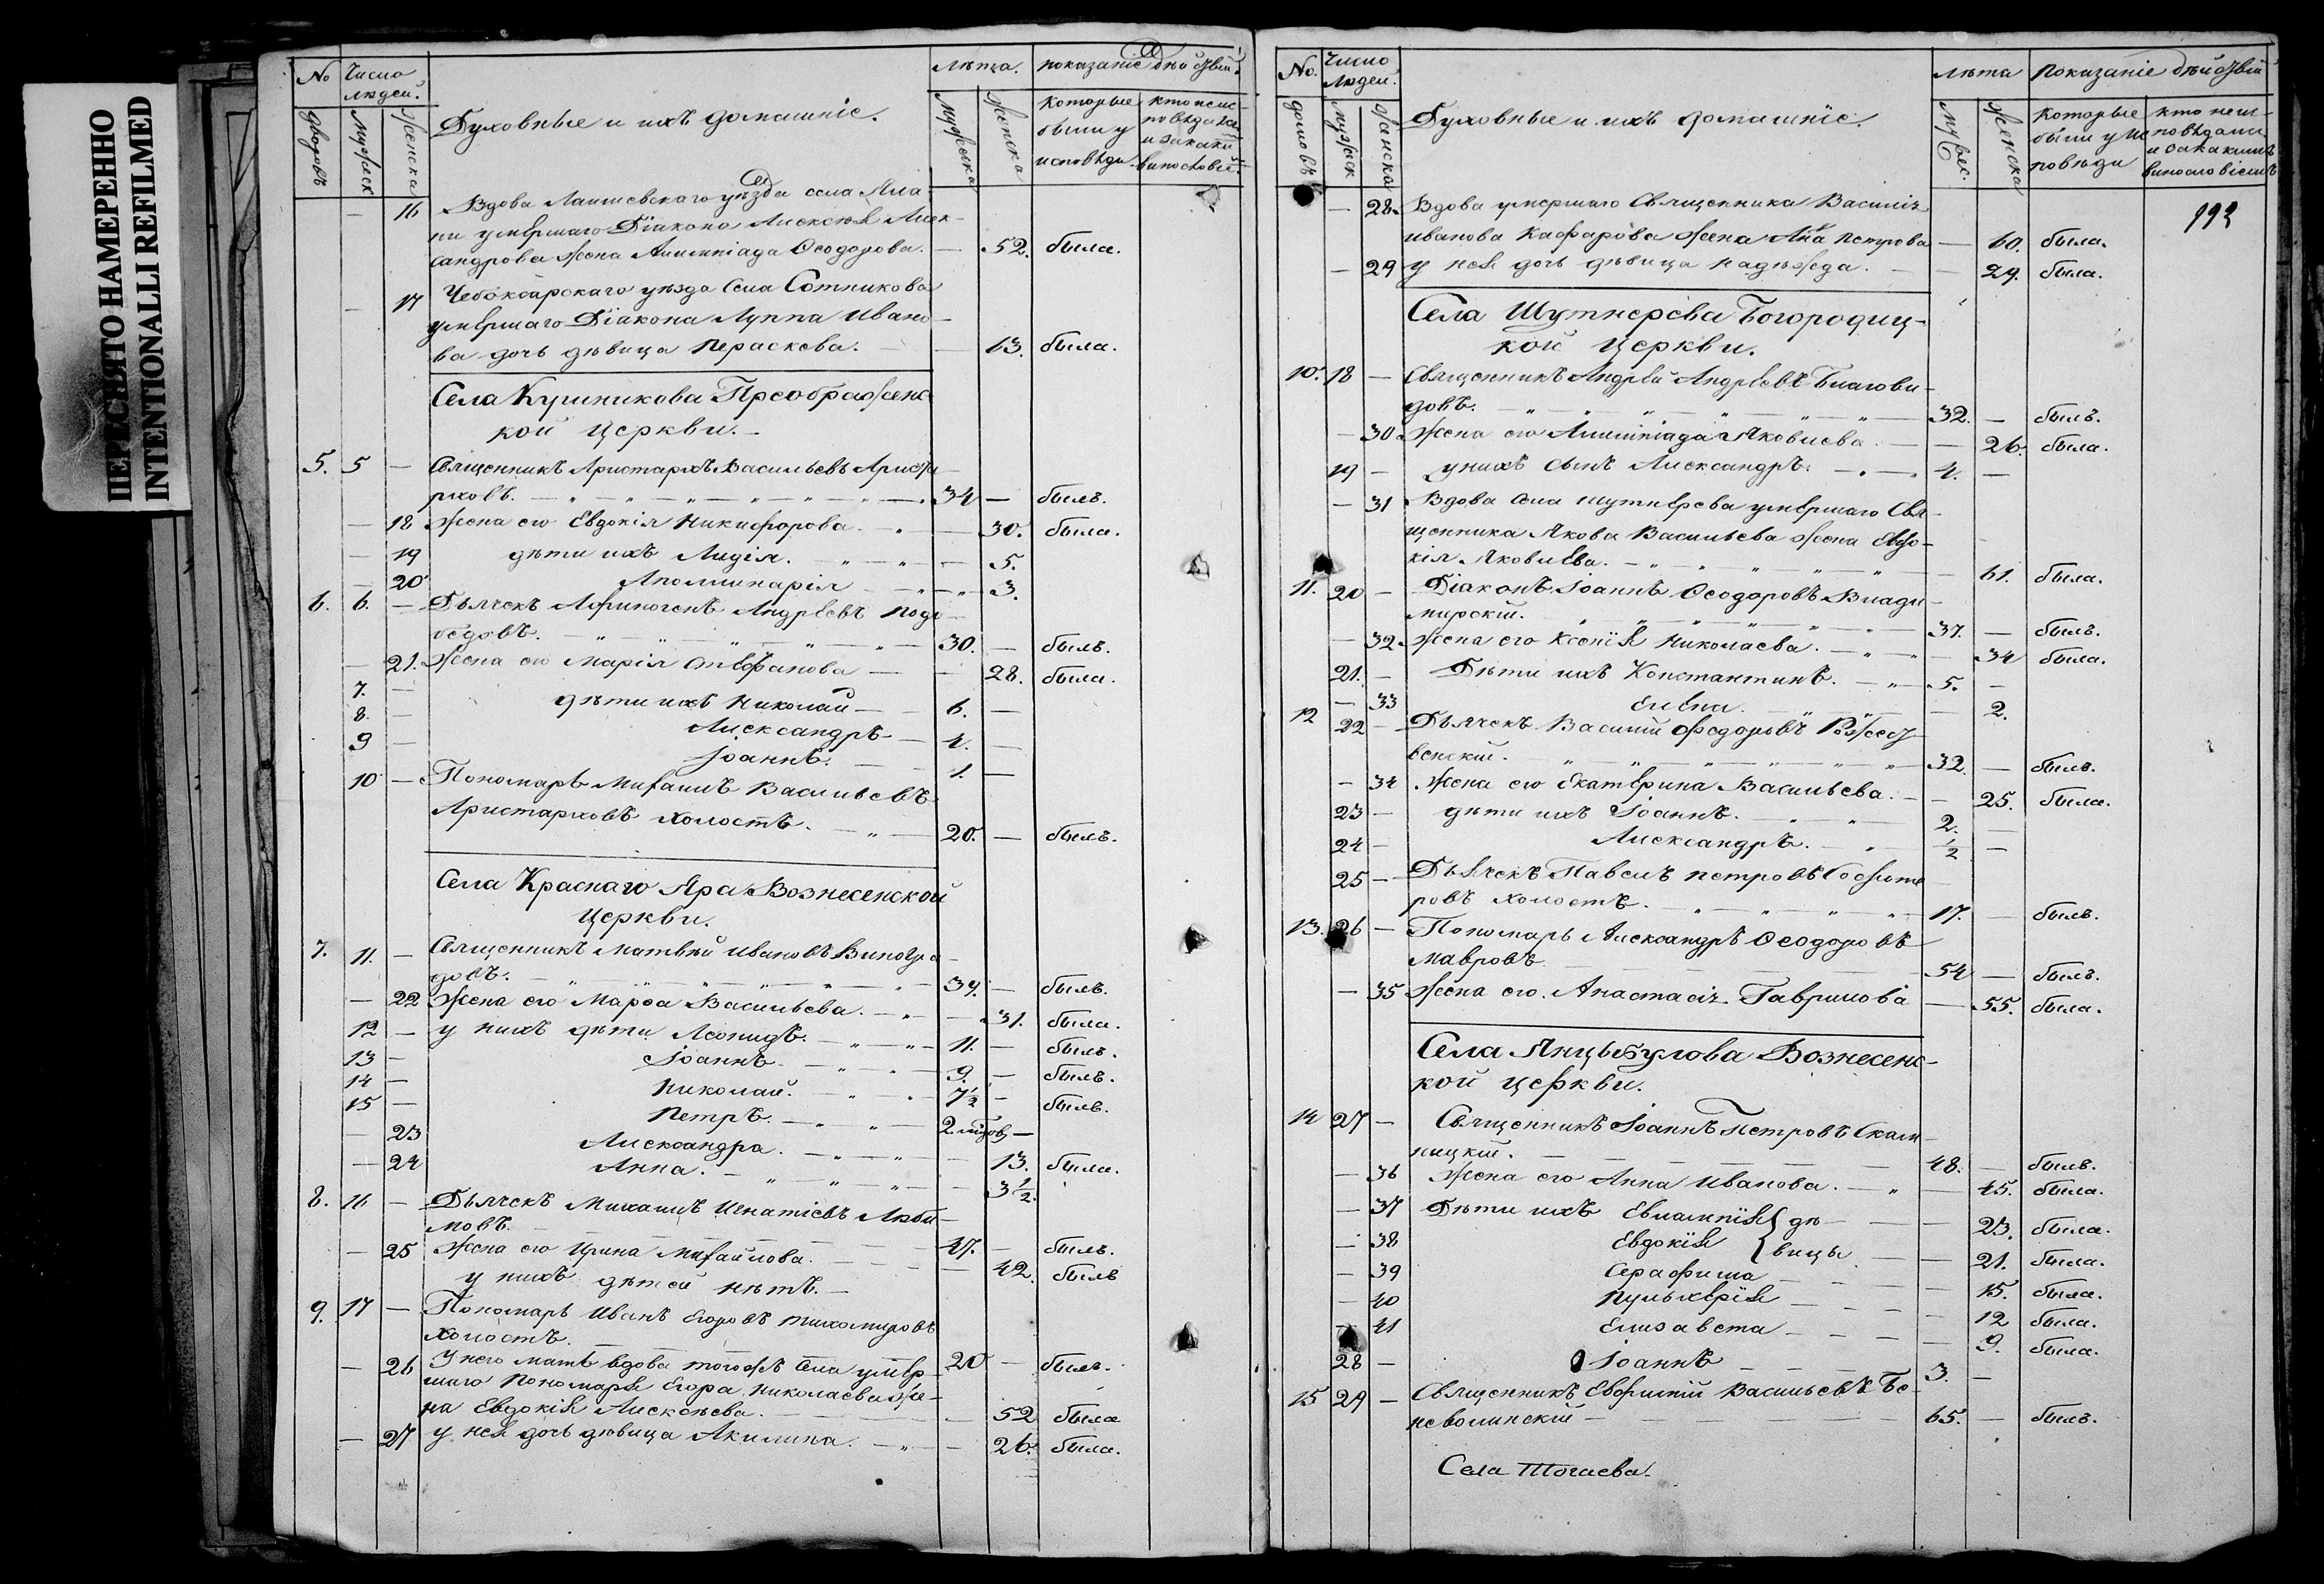 ПЕРЕСНЯТО НАМЕРЕННО
INTENTIONALLI REFILMED
No Число людей. Духовные и ихъ домашніе. Лѣта. показаніе дѣйствій.
дворовъ Мужеск Женска Мужеска Женска Которые были у исповѣди
16 Вдова Лаишевскаго уѣзда села
умершаго Діакона Алексѣя Алек-
сандрова жена Олимпіада Ѳеодорова. — 52. была.
17 Чебоксарскаго уѣзда Села Сотникова
умершаго Діакона Луппа Ивано-
ва дочь дѣвица Пераскева. — 13. была.
Села Кушникова Преображенс
кой церкви.
5. 5 — Священникъ Аристархъ Васильевъ Ариста
рховъ. 34 — былъ.
— 18 Жена его Евдокія Никифорова. — 30. была.
— 19 дѣти ихъ Лидія. — 5.
— 20 Аполлинарія — 3.
6. 6. — Дьячекъ Афиногенъ Андреевъ Подо-
бедовъ. 30. — былъ.
— 21. Жена его Марія — 28. была.
7. — дѣти ихъ Николай — 6. —
8. — Александръ — 4. —
9 — Іоаннъ. — 1. —
10 — Пономарь Михаилъ Васильевъ
Аристарховъ холостъ. 20. — былъ.
Села Краснаго Яра Вознесенской
Церкви.
7. 11. — Священникъ Матвѣй Ивановъ Виногра-
довъ. 34. — былъ.
— 22 Жена его Марѳа Васильева. — 31. была.
12 — у нихъ дѣти Леонидъ. 11. — былъ.
13 — Іоаннъ. 9. — былъ.
14 — Николай. 7½ — былъ.
15 — Петръ. 2 —
— 23 Александра. — 13. была.
— 24 Анна. — 3½.
8. 16 — Дьячекъ Михаилъ Игнатіевъ Люби-
мовъ. 47. — былъ.
— 25 Жена его Ирина Михайлова. — 42. былъ
у нихъ дѣтей нѣтъ. —
9. 17 — Пономарь Иванъ Егоровъ Тихомировъ
Холостъ. 20 — былъ.
— 26 У него мать вдова тогожъ Села умер-
шаго Пономаря Егора Николаева же-
на Евдокія Алексѣева. — 52 была
— 27 у нея дочь дѣвица Акилина. — 26. была.
No. Число людей. Духовные и ихъ домашніе. Лѣта Показаніе дѣйствій
домовъ мужеск женска мужес. женска которые были у ис повѣди кто неис- повѣдали и закакимъ винословіемъ
193
— 28. Вдова умершаго Священника Василія
Иванова Кафарова жена Анна Петрова — 60. была.
— 29 у нея дочь дѣвица Надежда. — 29. была.
Села Шутнерева Богородиц-
кой Церкви.
10. 18 — Священникъ Андрей Андреевъ Благови-
довъ. 32. — былъ.
— 30 Жена его Олимпіада Яковлева. — 26. была.
19 — у нихъ сынъ Александръ. 4. —
— 31 Вдова Села Шутнерева умершаго Свя-
щенника Якова Васильева жена Евдо-
кія Яковлева. — 61. была.
11. 20 — Діаконъ Іоаннъ Ѳеодоровъ Влади-
мирскій. 37. — былъ.
— 32 Жена его Ксенія Николаева. — 34 была.
21. — Дѣти ихъ Константинъ. 5. —
— 33 Елена. — 2.
12 22 — Дьячекъ Василій Федоровъ Рожест
венскій. 32. — былъ.
— 34 Жена его Екатерина Васильева. — 25. была.
23 — дѣти ихъ Іоаннъ. 2. —
24 — Александръ. ½ —
25 — Дьячекъ Павелъ Петровъ
ровъ холостъ. 17. — былъ.
13. 26 — Пономарь Александръ Ѳеодоровъ
Мавровъ 54 — былъ.
— 35 Жена его. Анастасія Гаврилова — 55. была.
Села Янцыбулова Вознесенс-
кой церкви.
14 27 — Священникъ Іоаннъ Петровъ Скали-
ницкій. 48. — былъ.
— 36 Жена его Анна Иванова. — 45. была.
— 37 Дѣти ихъ Евлампія } дѣ — 23. была.
— 38 Евдокія } вицы — 21. была.
— 39 Серафима — 15. была.
— 40 Пульхерія — 12 была.
— 41 Елизавета — 9. была.
28 — Іоаннъ 3. —
15 29 — Священникъ Евфимій Васильевъ Бе-
неволинскій — 65. — былъ.
Села Тогаева.